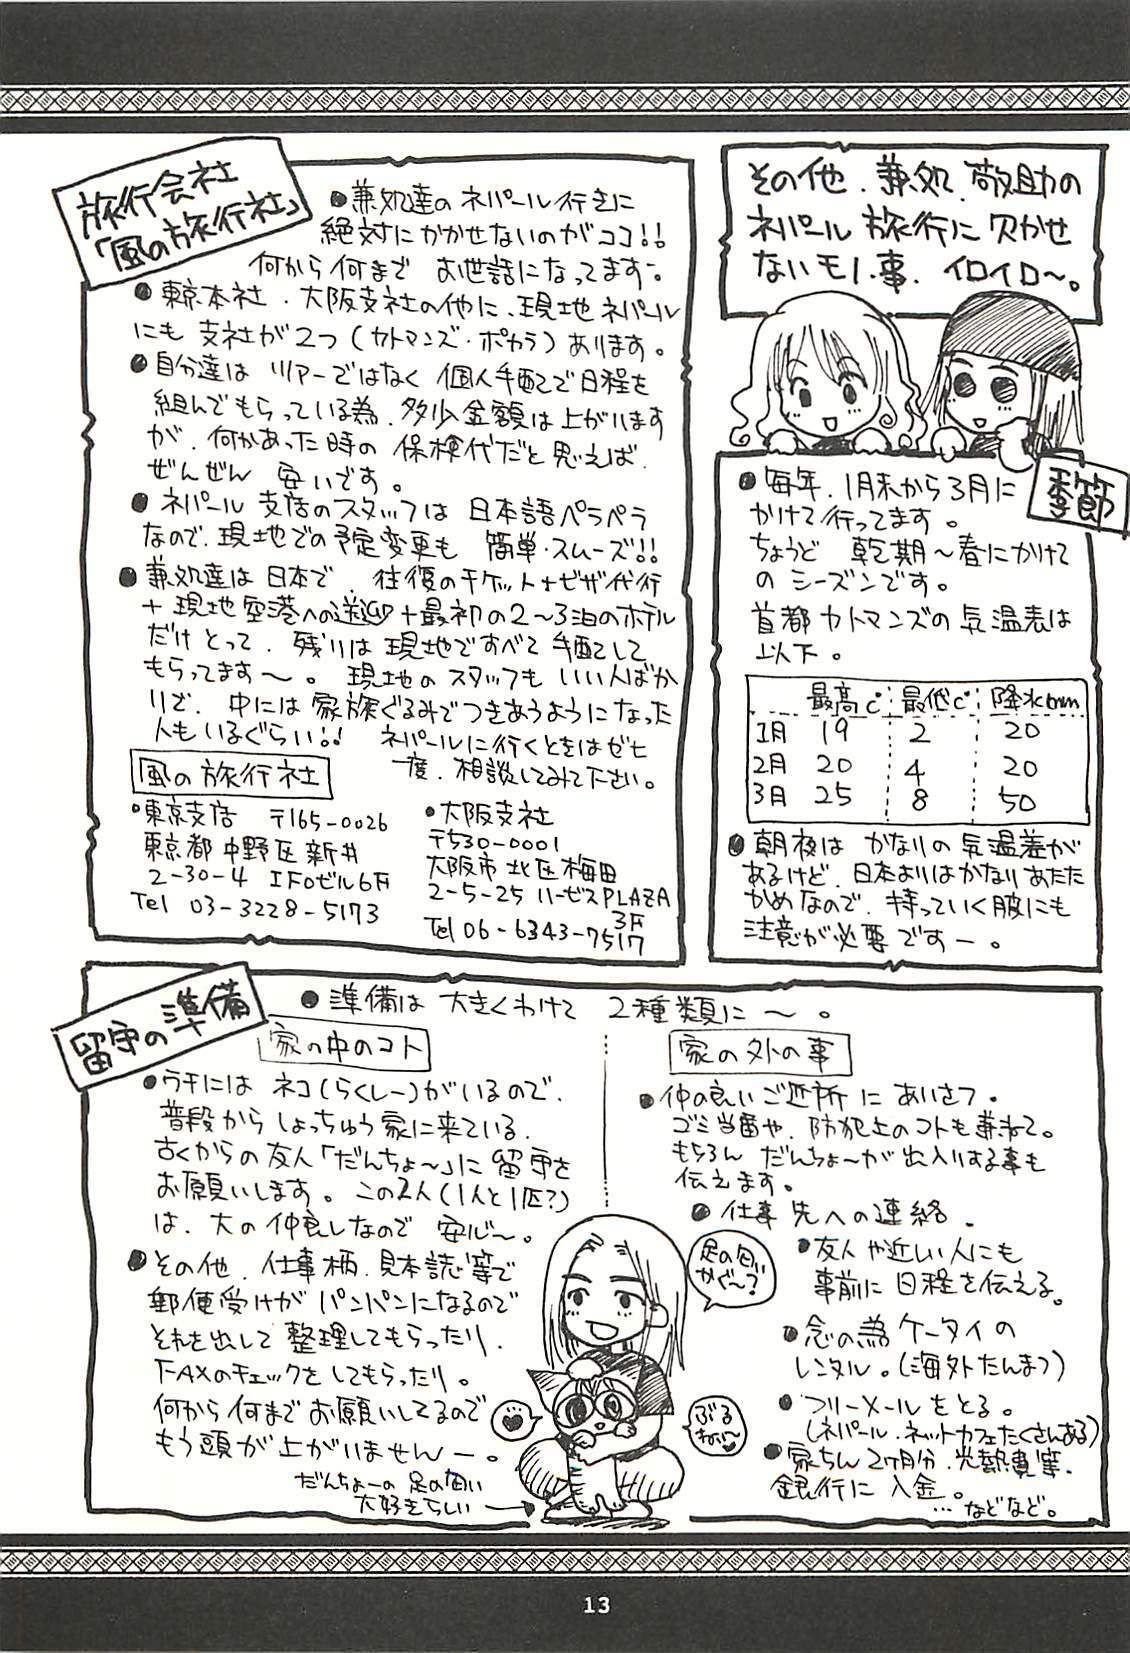 その他、兼処、敬助の
ネパール旅行に欠かせ
ないモノ、事、イロイロ〜。
季節
●毎年、1月末から3月に
かけて行ってます。
ちょうど 乾期〜春にかけて
のシーズンです。
首都カトマンズの気温表は
以下。
最高℃ 最低℃ 降水mm
1月 19 2 20
2月 20 4 20
3月 25 8 50
●朝夜は かなりの気温差が
あるけど、日本よりはかなりあたた
かめなので、持っていく服にも
注意が必要ですー。
旅行会社
「風の旅行社」
●兼処達のネパール行きに
絶対にかかせないのがココ!!
何から何まで お世話になってますー。
●東京本社、大阪支社の他に、現地ネパール
にも支社が2つ(カトマンズ・ポカラ)あります。
●自分達は ツアーではなく 個人手配で日程を
組んでもらっている為、多少金額は上がります
が、何かあった時の 保検代だと思えば、
ぜんぜん 安いです。
●ネパール支店のスタッフは 日本語ペラペラ
なので、現地での予定変更も 簡単・スムーズ!!
●兼処達は日本で、往復のチケット+ビザ代行
+現地空港への送迎+最初の2〜3泊のホテル
だけとって、残りは現地ですべて手配して
もらってます〜。現地のスタッフも いい人ばか
りで、中には家族ぐるみでつきあうようになった
人もいるぐらい!! ネパールに行くときはゼヒ
一度、相談してみて下さい。
風の旅行社
・東京支店 〒165-0026
東京都中野区新井
2-30-4 IFOビル6F
Tel 03-3228-5173
・大阪支社
〒530-0001
大阪市北区梅田
2-5-25 ハービスPLAZA
3F
Tel 06-6343-7517
留守の準備
●準備は 大きくわけて 2種類に〜。
家の中のコト
●ウチには ネコ(らくしー)がいるので、
普段から しょっちゅう家に来ている、
古くからの友人「だんちょ〜」に留守を
お願いします。この2人(1人と1匹?)
は、大の仲良しなので 安心〜。
●その他、仕事柄、見本誌等で
郵便受けが パンパンになるので
それを出して整理してもらったり、
FAXのチェックをしてもらったり。
何から何までお願いしてるので
もう頭が上がりませんー。
だんちょーの足の匂い
大好きらしい
足の匂い
かぐ〜?
ぷるねぃ〜
家の外の事
●仲の良いご近所にあいさつ。
ゴミ当番や、防犯上のコトも兼ねて。
もちろん だんちょ〜が出入りする事も
伝えます。
●仕事先への連絡。
●友人や近しい人にも
事前に日程を伝える。
●念の為ケータイの
レンタル。(海外たんまつ)
●フリーメールをとる。
(ネパール、ネットカフェたくさんある)
●家ちん2ヶ月分、光熱費等、
銀行に入金。
…などなど。
13